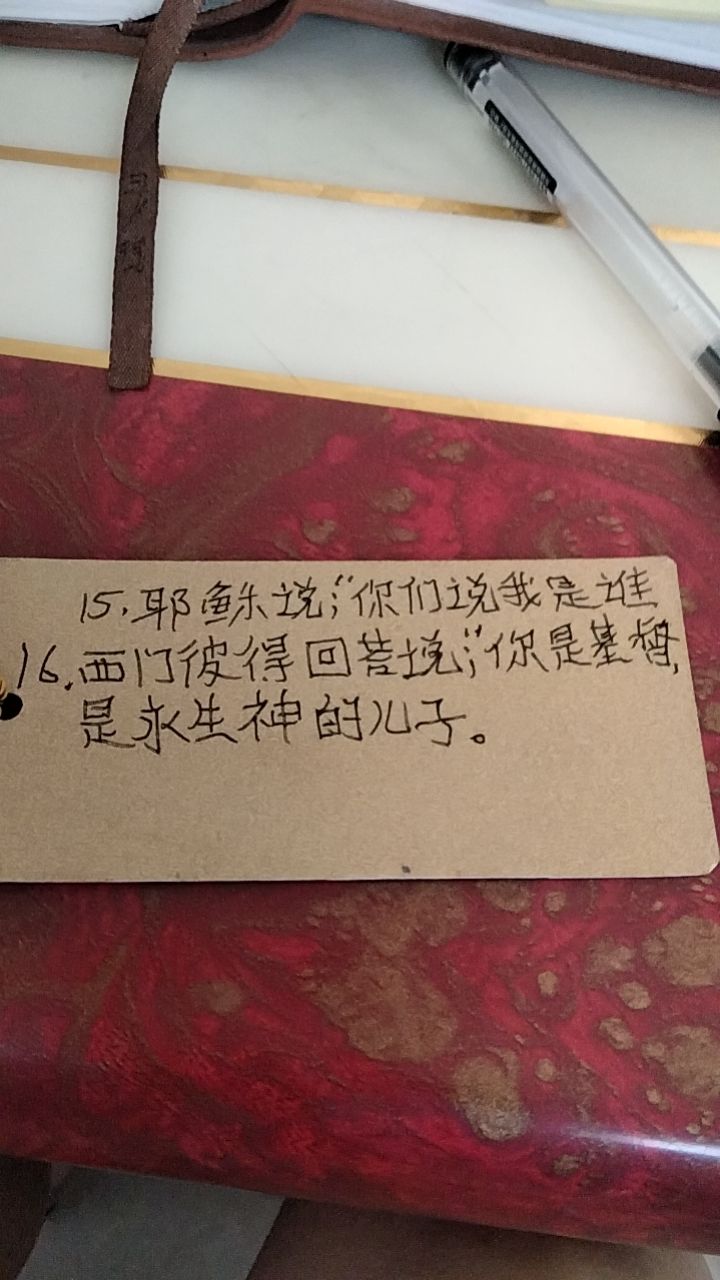 15.耶稣说:“你们说我是谁
16.西门彼得回答说:“你是基督,
是永生神的儿子。